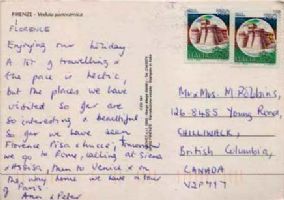 FIRENZE - Veduta panoramica
FLORENCE
Enjoying our holiday
A lot of travelling &
the pace is hectic,
but the places we have
visited so far are
so interesting & beautiful
So far we have seen
Florence Pisa & Lucca; tomorrow
we go to Rome, calling at Siena
& Assisi, then to Venice & on
the way home we have a tour
of Paris.
& Peter
Mr & Mrs. M. Robbins,
126-8485 Young Road,
CHILLIWACK,
British Columbia,
CANADA
V2P 7Y7